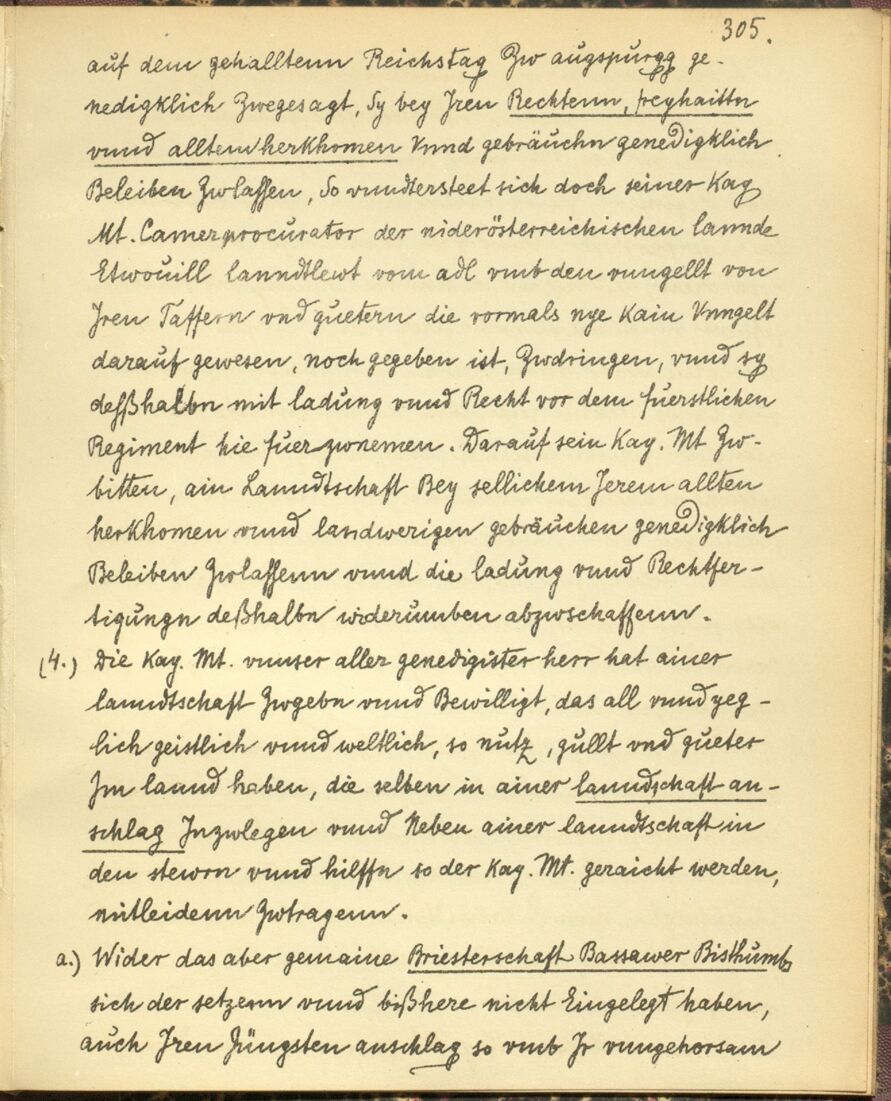 305.
auf dem gehalltenn Reichstag Zw augspurgg ge-
nedigklich Zwegesagt, Sy bey Jren Rechtenn, freyhaittn
vnnd alltem herkhomen Vnnd gebräuchn genedigklich
Beleiben Zwlassen, So vnndtersteet sich doch seiner Kay
Mt. Camerprocurator der niderösterreichischen lannde
Etwouill lanndtlewt vom adl vmb den vnngellt von
Jren Taffern vnd guetern die vormals nye Kain Vnngelt
darauf gewesen, noch gegeben ist, Zwdringen, vnnd sy
desßhalbn mit ladung vnnd Recht vor dem fuerstlichen
Regiment hie fuerzwnemen. Darauf sein Kay. Mt Zw-
bitten, ain Lanndtschaft Bey sellichem Jerem allten
herkhomen vnnd landwerigen gebräuchen genedigklich
Beleiben Zwlassenn vnnd die ladung vnnd Rechtfer-
tigungn deßhalbn widerumben abzwschaffenn.
(4.) Die Kay. Mt. vnnser aller genedigister herr hat ainer
lanndtschaft Zwgebn vnnd Bewilligt, das all vnnd yeg-
lich geistlich vnnd weltlich, so nutz, gullt vnd gueter
Jm lannd haben, die selben in ainer lanndschaft an-
schlag Jnzwlegen vnnd Neben ainer lanndtschaft in
den stewrn vnnd hilffn so der Kay. Mt. geraicht werden,
mitleidenn Zwtragenn.
a.) Wider das aber gemaine Briesterschaft Bassawer Bisthumbs
sich der setzenn vnnd bißhere nicht Eingelegt haben,
auch Jren Jüngsten anschlag so vmb Jr vnngehorsam